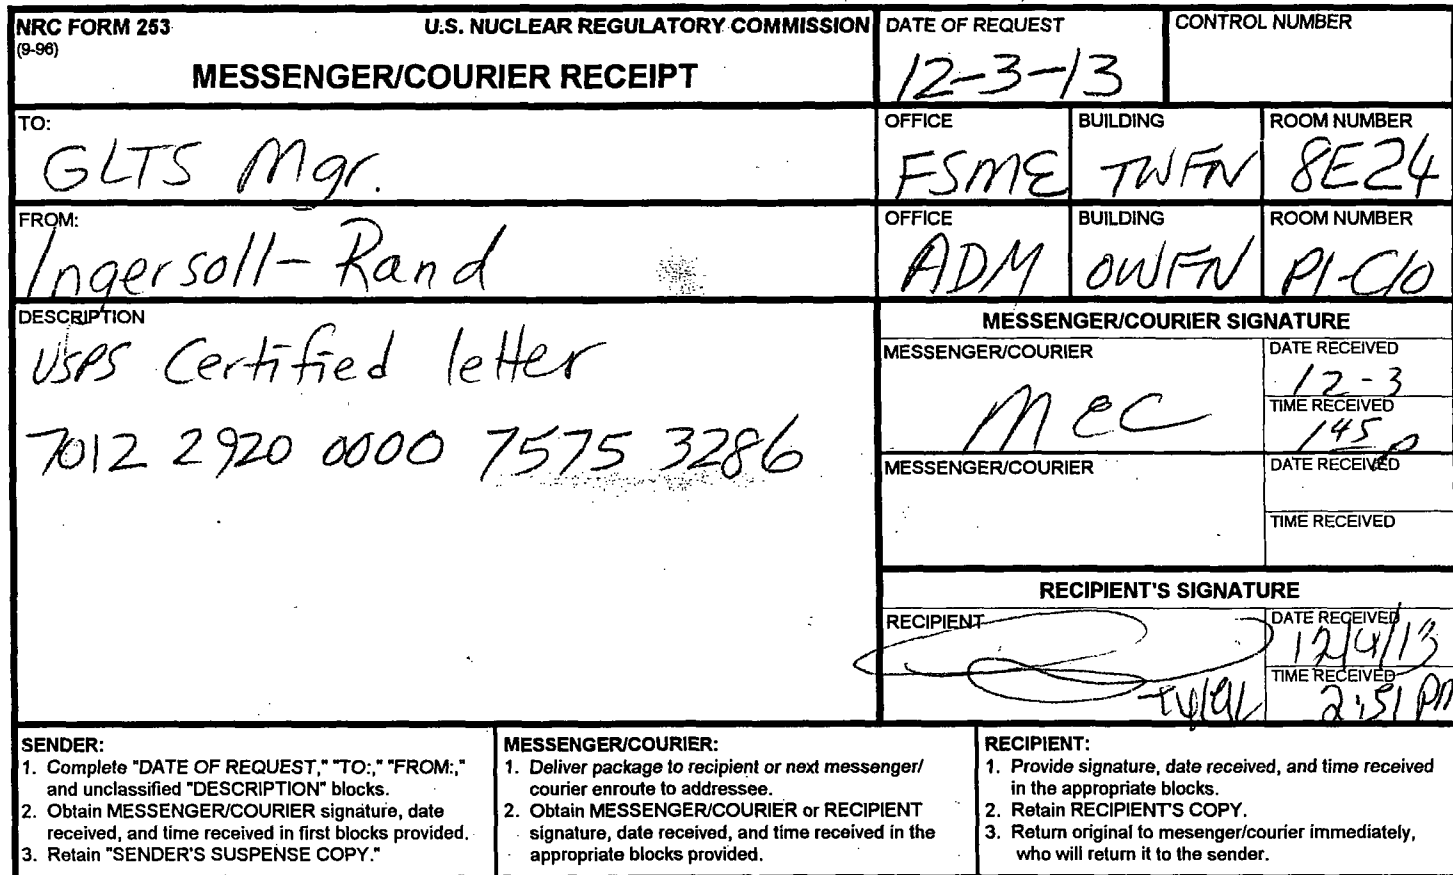 NRC FORM 253
(9-96)
U.S. NUCLEAR REGULATORY COMMISSION
MESSENGER/COURIER RECEIPT
DATE OF REQUEST
12-3-13
CONTROL NUMBER
TO:
GLTS Mgr.
OFFICE
FSME
BUILDING
TWFN
ROOM NUMBER
8E24
FROM:
Ingersoll-Rand
OFFICE
ADM
BUILDING
OWFN
ROOM NUMBER
P1-C10
DESCRIPTION
USPS Certified letter
7012 2920 0000 7575 3286
MESSENGER/COURIER SIGNATURE
MESSENGER/COURIER
MEC
DATE RECEIVED
12-3
TIME RECEIVED
145 p
MESSENGER/COURIER
DATE RECEIVED
TIME RECEIVED
RECIPIENT'S SIGNATURE
RECIPIENT
DATE RECEIVED
12/4/13
TIME RECEIVED
2:51 PM
SENDER:
1. Complete "DATE OF REQUEST," "TO:," "FROM:,"
and unclassified "DESCRIPTION" blocks.
2. Obtain MESSENGER/COURIER signature, date
received, and time received in first blocks provided.
3. Retain "SENDER'S SUSPENSE COPY."
MESSENGER/COURIER:
1. Deliver package to recipient or next messenger/
courier enroute to addressee.
2. Obtain MESSENGER/COURIER or RECIPIENT
signature, date received, and time received in the
appropriate blocks provided.
RECIPIENT:
1. Provide signature, date received, and time received
in the appropriate blocks.
2. Retain RECIPIENT'S COPY.
3. Return original to mesenger/courier immediately,
who will return it to the sender.